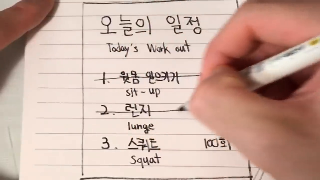 오늘의 일정
Today's Work out
1. 윗몸 일으키기
sit-up
2. 런지
lunge
3. 스쿼트 100회
Squat